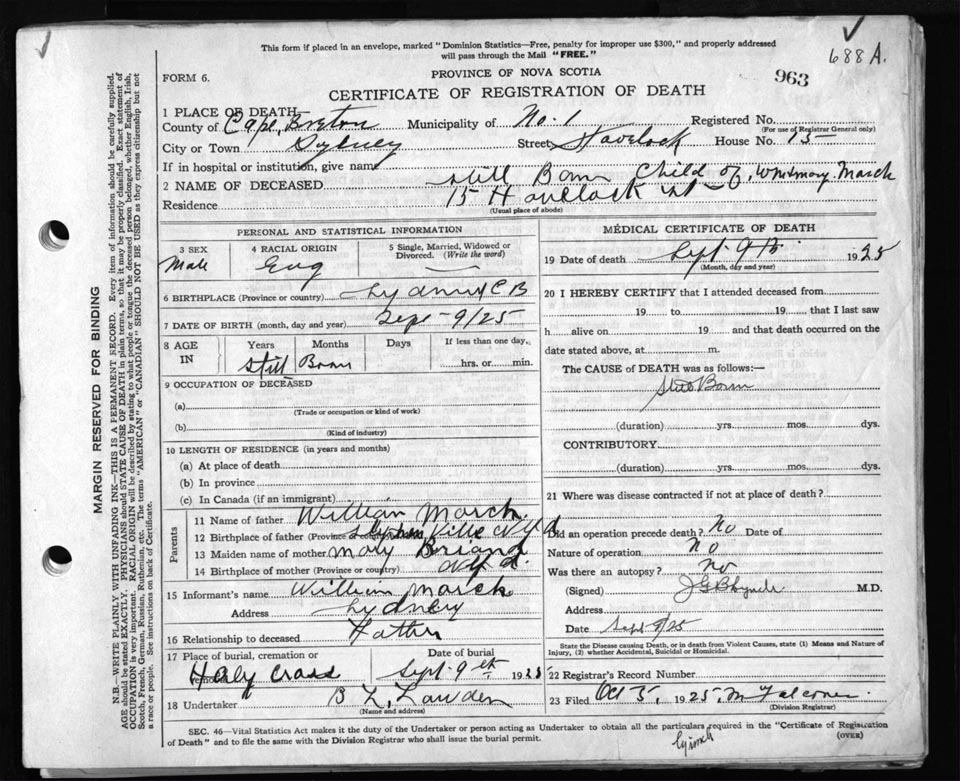 688 A.
This form if placed in an envelope, marked "Dominion Statistics—Free, penalty for improper use $300," and properly addressed
will pass through the Mail "FREE."
FORM 6.
PROVINCE OF NOVA SCOTIA
963
CERTIFICATE OF REGISTRATION OF DEATH
MARGIN RESERVED FOR BINDING
N.B.—WRITE PLAINLY WITH UNFADING INK—THIS IS A PERMANENT RECORD. Every item of information should be carefully supplied.
AGE should be stated EXACTLY. PHYSICIANS should STATE CAUSE OF DEATH in plain terms, so that it may be properly classified. Exact statement of
OCCUPATION is very important. RACIAL ORIGIN will be described by stating to what people or tongue the deceased person belonged, whether English, Irish,
Scotch, French, German, Russian, Ruthenian, etc. The terms "AMERICAN" or "CANADIAN" SHOULD NOT BE USED as they express citizenship but not
a race or people. See instructions on back of Certificate.
1 PLACE OF DEATH
County of Cape Breton Municipality of No. 1 Registered No.
(For use of Registrar General only)
City or Town Sydney Street Havelock House No. 15
If in hospital or institution, give name
2 NAME OF DECEASED Still Born Child of, Wm & Mary. March
Residence 15 Havelock St
(Usual place of abode)
PERSONAL AND STATISTICAL INFORMATION
3 SEX
Male
4 RACIAL ORIGIN
Eng
5 Single, Married, Widowed or
Divorced. (Write the word)
6 BIRTHPLACE (Province or country) Sydney C B
7 DATE OF BIRTH (month, day and year) Sept 9/25
8 AGE
IN
Years Months Days If less than one day,
Still Born hrs. or min.
9 OCCUPATION OF DECEASED
(a)
(Trade or occupation or kind of work)
(b)
(Kind of industry)
10 LENGTH OF RESIDENCE (in years and months)
(a) At place of death
(b) In province
(c) In Canada (if an immigrant)
Parents
11 Name of father William March.
12 Birthplace of father (Province or country) Stephenville Nfld
13 Maiden name of mother Mary
14 Birthplace of mother (Province or country) Nfld.
15 Informant's name William March
Address Sydney
16 Relationship to deceased Father
17 Place of burial, cremation or
Holy Cross
Date of burial
Sept 9th 1925
18 Undertaker
(Name and address)
MEDICAL CERTIFICATE OF DEATH
19 Date of death Sept 9th 1925
(Month, day and year)
20 I HEREBY CERTIFY that I attended deceased from
19 to 19 that I last saw
h alive on 19 and that death occurred on the
date stated above, at m.
The CAUSE of DEATH was as follows:—
Still Born
(duration) yrs. mos. dys.
CONTRIBUTORY
(duration) yrs. mos. dys.
21 Where was disease contracted if not at place of death?
Did an operation precede death? No Date of
Nature of operation No
Was there an autopsy? No
(Signed) M.D.
Address
Date Sept 9/25
State the Disease causing Death, or in death from Violent Causes, state (1) Means and Nature of
Injury, (2) whether Accidental, Suicidal or Homicidal.
22 Registrar's Record Number
23 Filed Oct 5, 1925, M Falconer.
(Division Registrar)
SEC. 46—Vital Statistics Act makes it the duty of the Undertaker or person acting as Undertaker to obtain all the particulars required in the "Certificate of Registration
of Death" and to file the same with the Division Registrar who shall issue the burial permit.
(OVER)